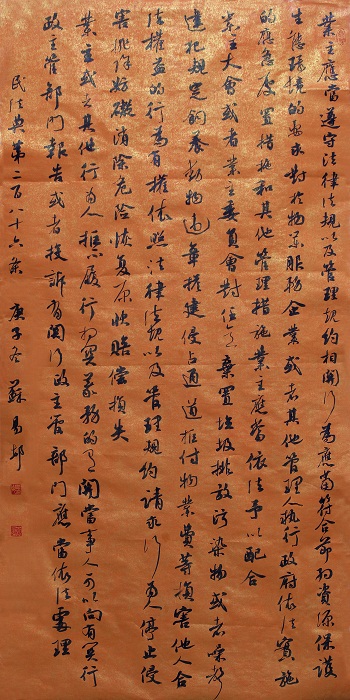 業主應當遵守法律法規以及管理規約相關行為應當符合節約資源保護
生態環境的要求對於物業服務企業或者其他管理人執行政府依法實施
的應急處置措施和其他管理措施業主應當依法予以配合
業主大會或者業主委員會對任意棄置垃圾排放污染物或者噪聲
違犯規定飼養動物違章搭建侵占通道拒付物業費等損害他人合
法權益的行為有權依照法律法規以及管理規約請求行為人停止侵
害排除妨礙消除危險恢復原狀賠償損失
業主或者其他行為人拒不履行相關義務的有關當事人可以向有關行
政主管部門報告或者投訴有關行政主管部門應當依法處理
民法典第二百八十六條 庚子冬 蘇易邨